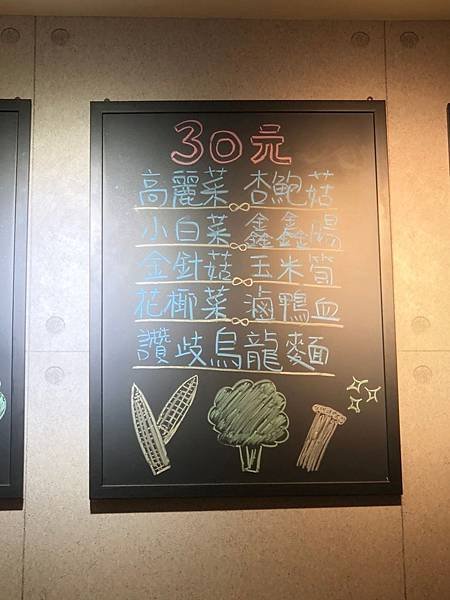 30元
高麗菜 杏鮑菇
小白菜 鑫鑫腸
金針菇 玉米筍
花椰菜 滷鴨血
讚歧烏龍麵